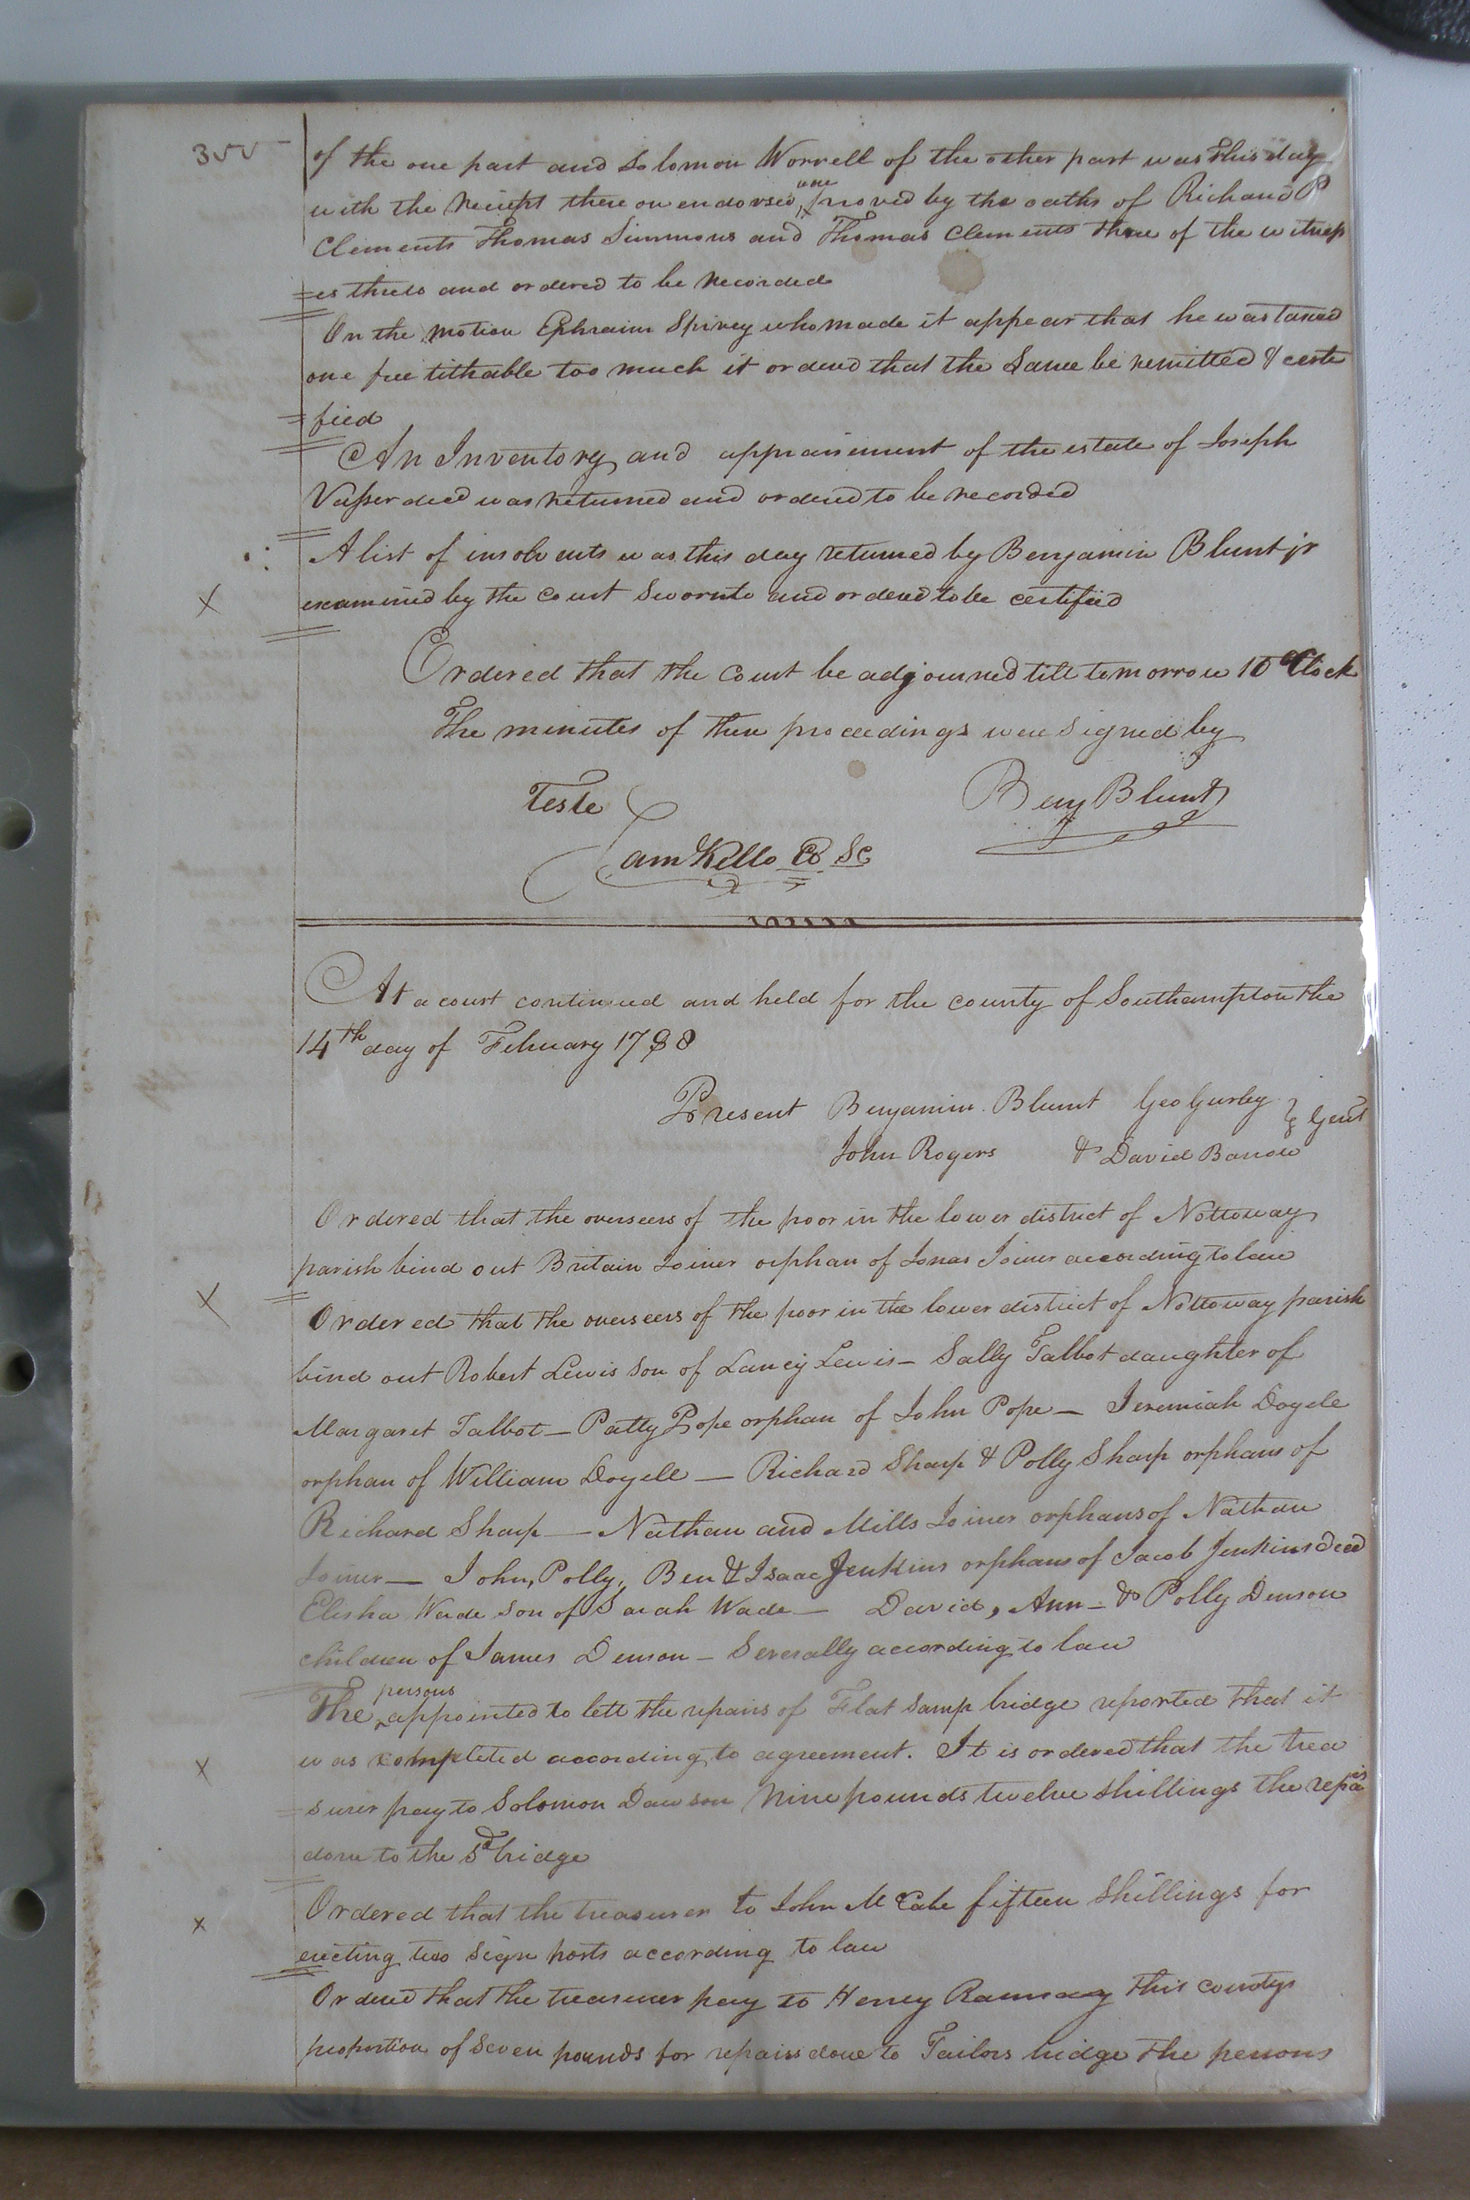 355
of the one part and Solomon Worrell of the other part was this day
with the Reciept there on endorsed were proved by the oaths of Richard P
Clements Thomas Simmons and Thomas Clements three of the witness
=es thereto and ordered to be recorded
On the motion Ephraim Spivey who made it appear that he was taxed
one free tithable too much it ordered that the Same be remitted & certi
=fied
An Inventory and appraisement of the estate of Joseph
Vasser decd was returned and ordered to be recorded
A list of insolvents was this day returned by Benjamin Blunt jr
examined by the court Sworn to and ordered to be certified
Ordered that the Court be adjourned till tomorrow 10 oClock
The minutes of these proceedings were Signed by
Teste Benj Blunt
Sam Kello CSC
At a court continued and held for the county of Southampton the
14th day of February 1788
Present Benjamin Blunt Geo Gurley } Gent
John Rogers & David Barrow
Ordered that the overseers of the poor in the lower district of Nottoway
parish bind out Britain Joiner orphan of Jonas Joiner according to law
Ordered that the overseers of the poor in the lower district of Nottoway parish
bind out Robert Lewis Son of Lancy Lewis — Sally Talbot daughter of
Margaret Talbot — Patty Pope orphan of John Pope — Jeremiah Doyele
orphan of William Doyell — Richard Sharp & Polly Sharp orphans of
Richard Sharp — Nathan and Mills Joiner orphans of Nathan
Joiner — John, Polly, Ben & Isaac Jenkins orphans of Jacob Jenkins decd
Elisha Wade Son of Sarah Wade — David, Ann — & Polly Denson
children of James Denson — Severally according to law
The persons appointed to lett the repairs of Flat Samp bridge reported that it
was completed according to agreement. It is ordered that the trea
=surer pay to Solomon Dawson Nine pounds twelve shillings the repairs
done to the sd bridge
Ordered that the treasurer to John McCabe fifteen Shillings for
erecting two Sign posts according to law
Ordered that the treasurer pay to Henry Ramsay this countys
proportion of Seven pounds for repairs done to Tailors bridge the persons